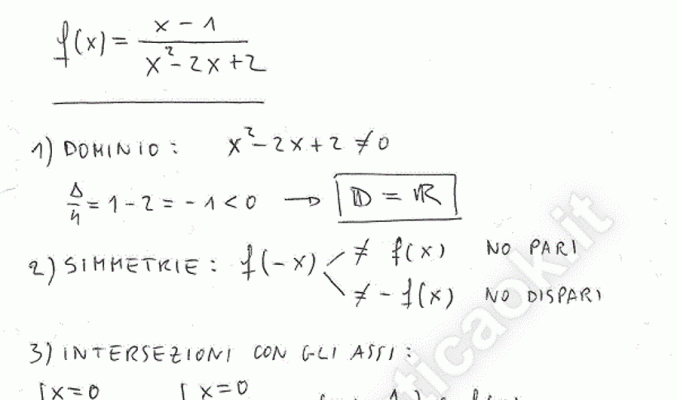 f(x) = (x - 1) / (x² - 2x + 2)
1) DOMINIO: x² - 2x + 2 ≠ 0
Δ/4 = 1 - 2 = -1 < 0 → D = ℝ
2) SIMMETRIE: f(-x) ≠ f(x) NO PARI
≠ -f(x) NO DISPARI
3) INTERSEZIONI CON GLI ASSI:
{x=0 {x=0
ticaok.it